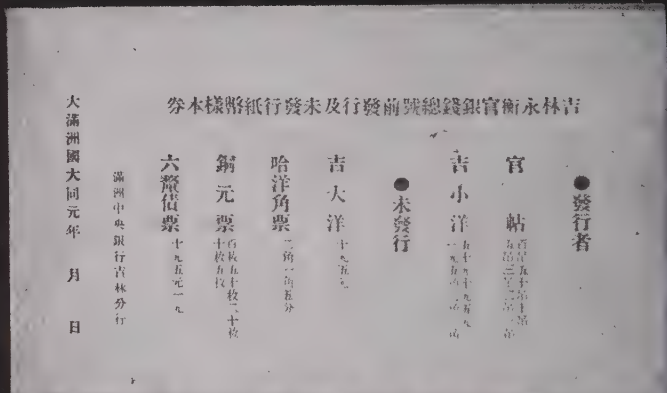 吉林永衡官銀錢總號前發行及未發行紙幣樣本券
●發行者
官帖
吉小洋
●未發行
吉大洋
哈洋角票
二角一角五分
銅元票
百枚五十枚二十枚
十枚五枚
六釐債票
滿洲中央銀行吉林分行
大滿洲國大同元年 月 日